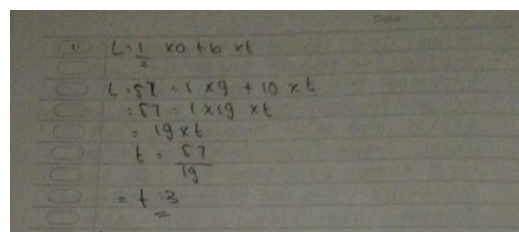 1. L = 1/2 x a + b x t
L = 57 = 1 x 9 + 10 x t
= 57 = 1 x 19 x t
= 19 x t
t = 57/19
= t = 3